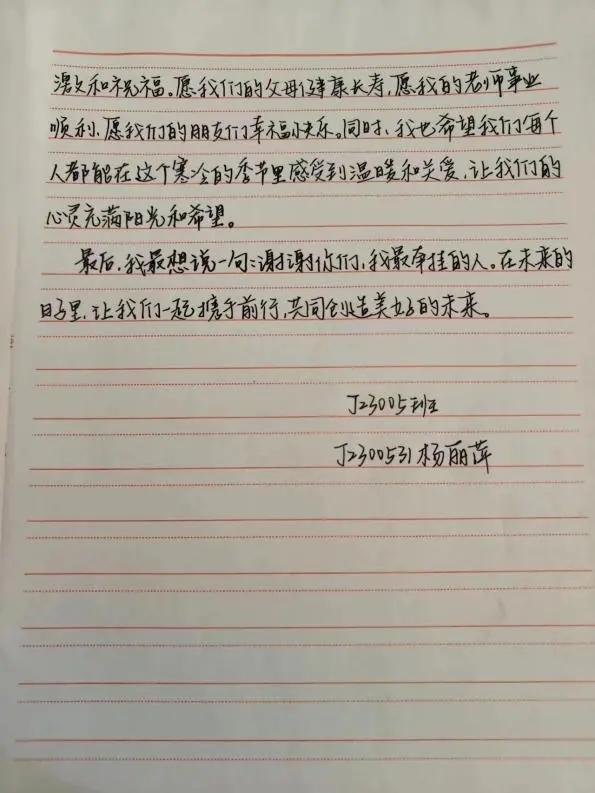 激和祝福。愿我们的父母健康长寿,愿我的老师事业
顺利,愿我们的朋友们幸福快乐。同时,我也希望我们每个
人都能在这个寒冷的季节里感受到温暖和关爱,让我们的
心灵充满阳光和希望。
最后,我最想说一句:谢谢你们,我最牵挂的人。在未来的
日子里,让我们一起携手前行,共同创造美好的未来。
J23005班
J2300531杨丽萍